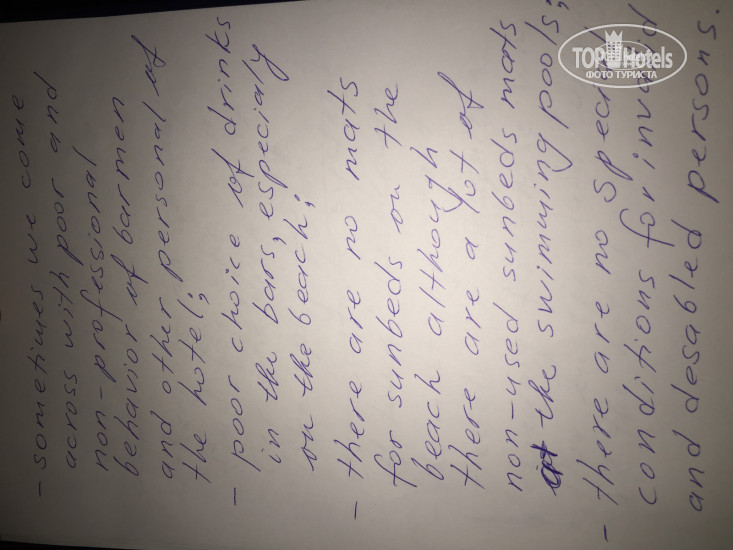 - sometimes we come
across with poor and
non-professional
behavior of barmen
and other personal of
the hotel;
- poor choice of drinks
in the bars, especialy
on the beach;
- there are no mats
for sunbeds on the
beach although
there are a lot of
non-used sunbeds mats
at the swimming pools;
- there are no
conditions for
and desabled persons.
TOP Hotels
ФОТО ТУРИСТА